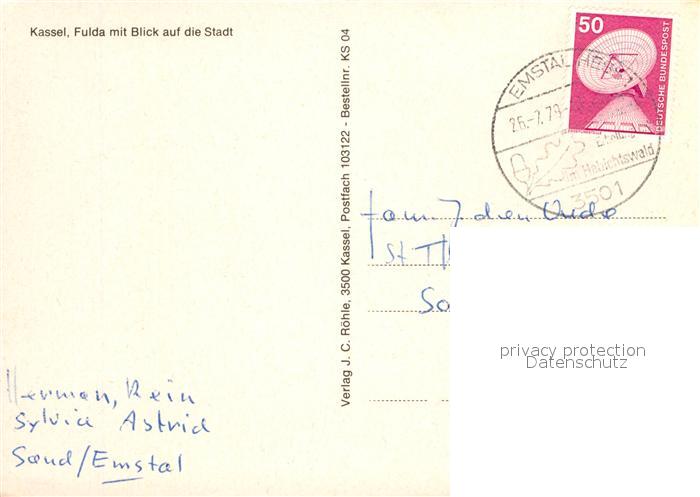 Kassel, Fulda mit Blick auf die Stadt
Verlag J. C. Röhle, 3500 Kassel, Postfach 103122 - Bestellnr. KS 04
50
DEUTSCHE BUNDESPOST
EMSTAL
26.-7.79
im Habichtswald
3501
Fam. J den Oude
St Th
So
privacy protection
Datenschutz
Herman, Rein
Sylvia Astrid
Sand/Emstal